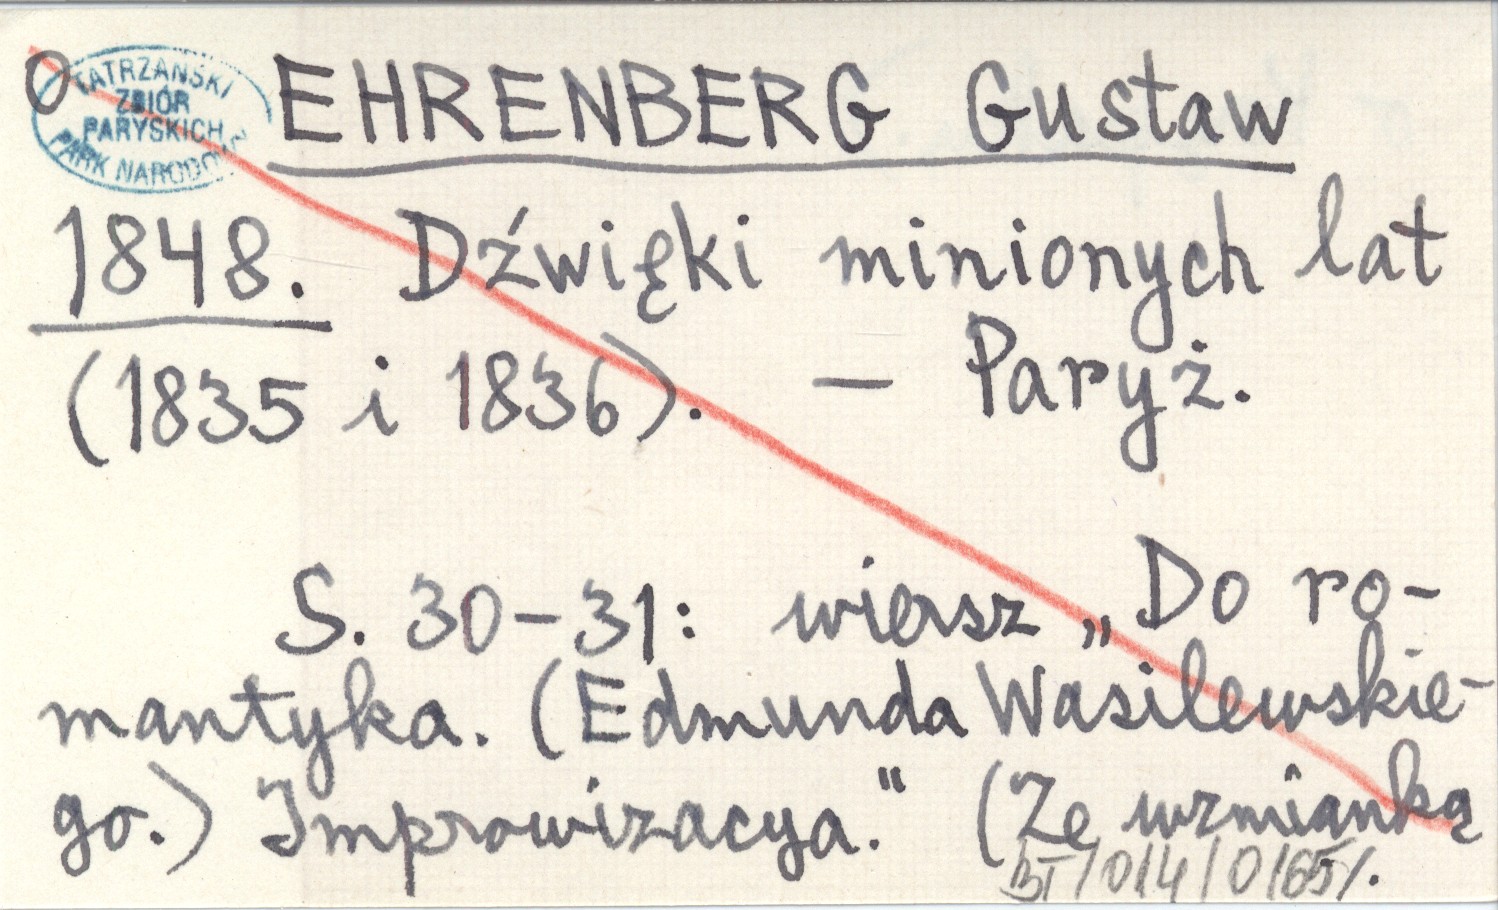 O
TATRZAŃSKI
ZBIÓR
PARYSKICH
PARK NARODOWY
EHRENBERG Gustaw
1848. Dźwięki minionych lat
(1835 i 1836). — Paryż.
S. 30-31: wiersz „Do ro-
mantyka. (Edmunda Wasilewskie-
go.) Improwizacya." (Ze wzmianką
BT/014/0165/.